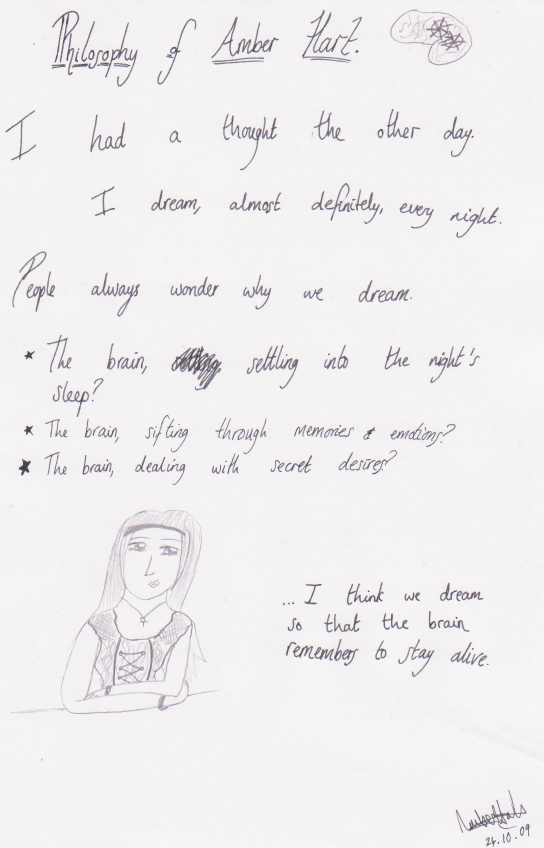 Philosophy of Amber Hart.
I had a thought the other day.
I dream, almost definitely, every night.
People always wonder why we dream.
* The brain, settling into the night's
sleep?
* The brain, sifting through memories & emotions?
* The brain, dealing with secret desires?
... I think we dream
so that the brain
remembers to stay alive.
24.10.09